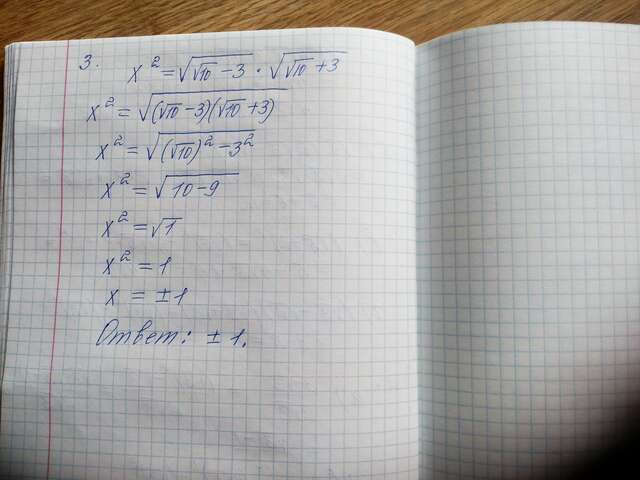 3. x² = √(√10 - 3) · √(√10 + 3)
x² = √((√10 - 3)(√10 + 3))
x² = √((√10)² - 3²)
x² = √(10 - 9)
x² = √1
x² = 1
x = ±1
Ответ: ± 1.